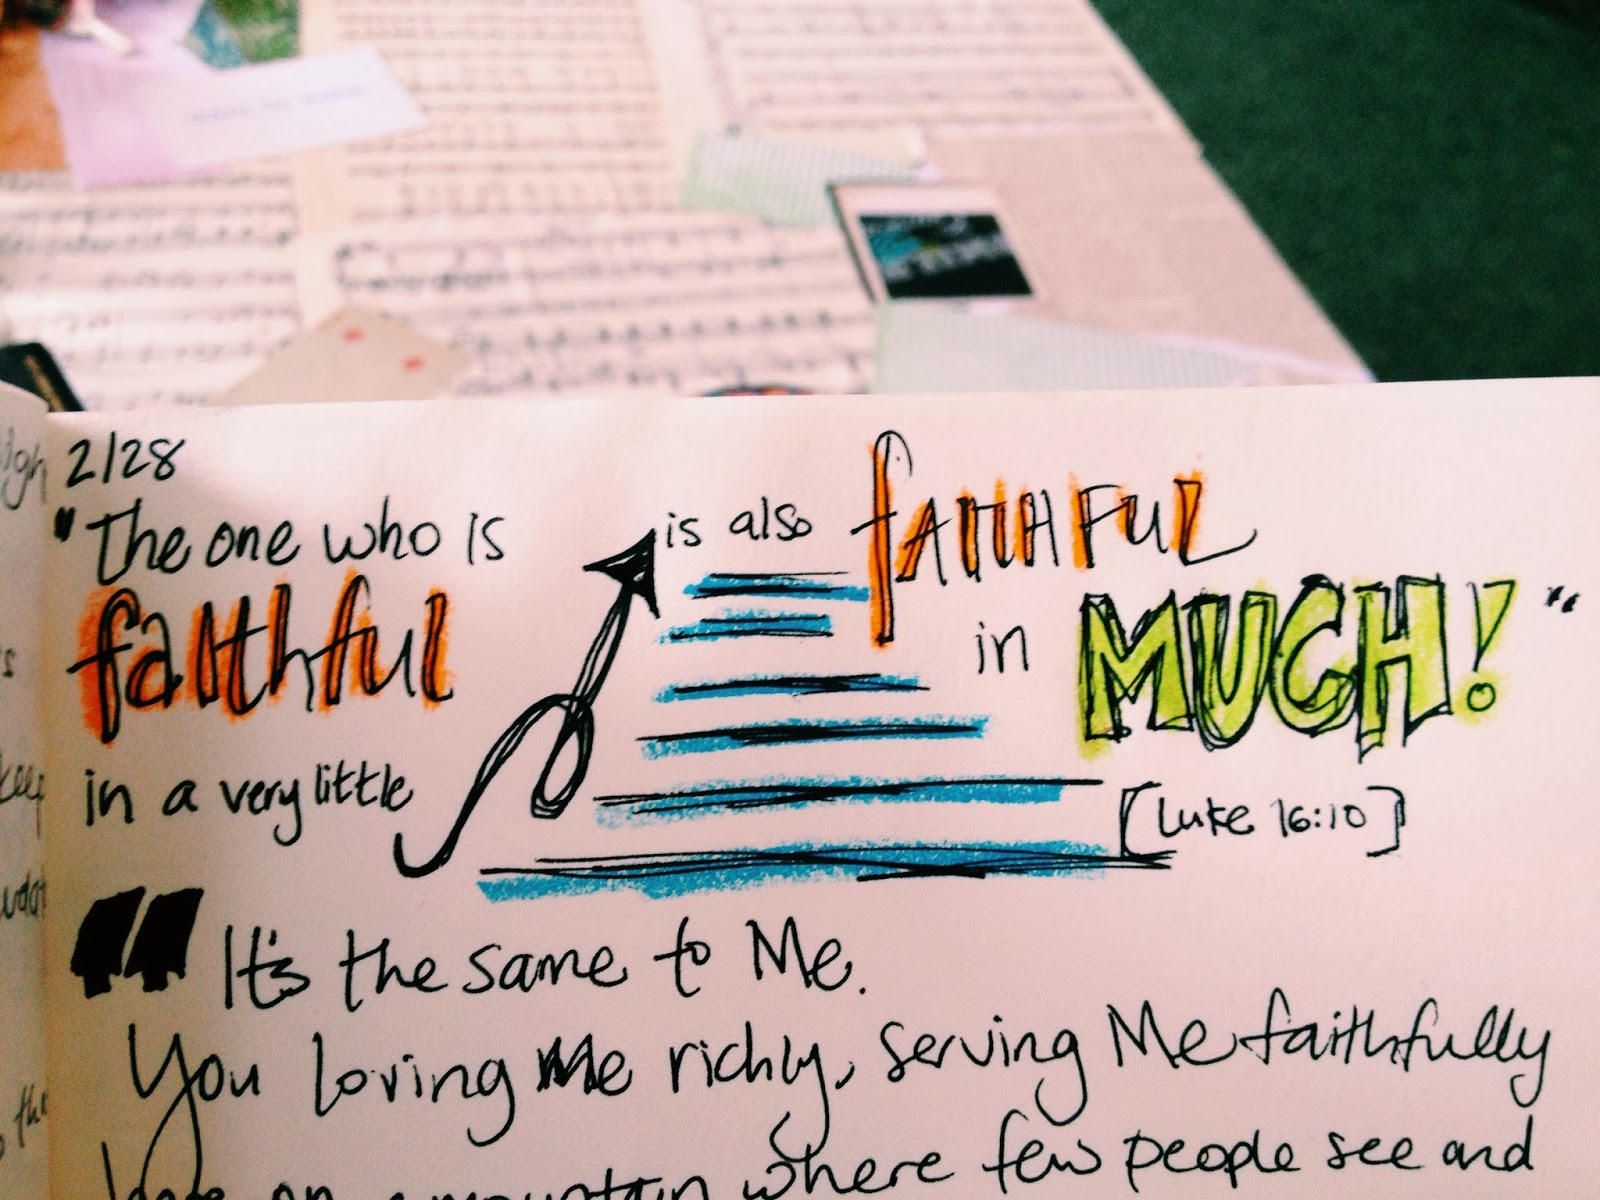 2/28
"The one who is
faithful
in a very little
is also fAITHFUL
in MUCH!"
[Luke 16:10]
"It's the same to Me.
You loving Me richly, serving Me faithfully
here on a mountain where few people see and